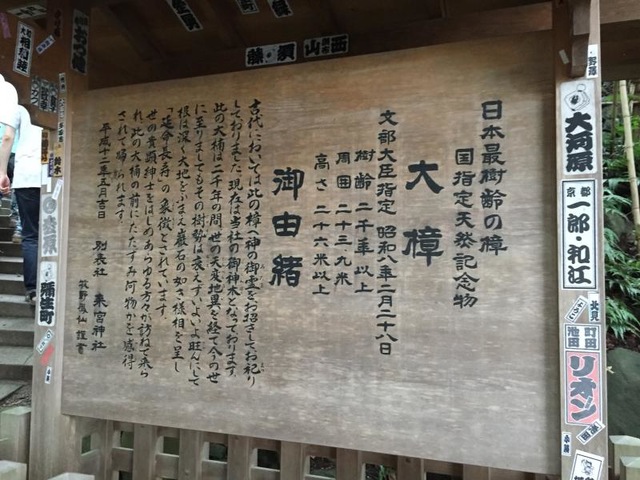 日本最樹齢の樟
国指定天然記念物
大樟
文部大臣指定 昭和八年二月二十八日
樹齢 二千年以上
周囲 二十三、九米
高さ 二十六米以上
御由緒
古代においては此の樟へ神の御霊をお招きしてお祀り
しておりました。現在は当社の御神木となっております。
此の大楠は二千年の間、世の天変地異を経て今の世
に至りましてもその樹勢は衰えず、いよいよ旺んにして
根は深く大地をふまえ巌石の如き様相を呈し
「延命長寿」の象徴とされています。
世の貴顕紳士をはじめあらゆる方々が訪ねて来ら
れ此の大楠の前にたたずみ何物かを感得
されて帰られます。
平成十二年五月吉日 別表社 来宮神社
西山
大河原
京都
一郎・和江
北見
町田
池田
リオン